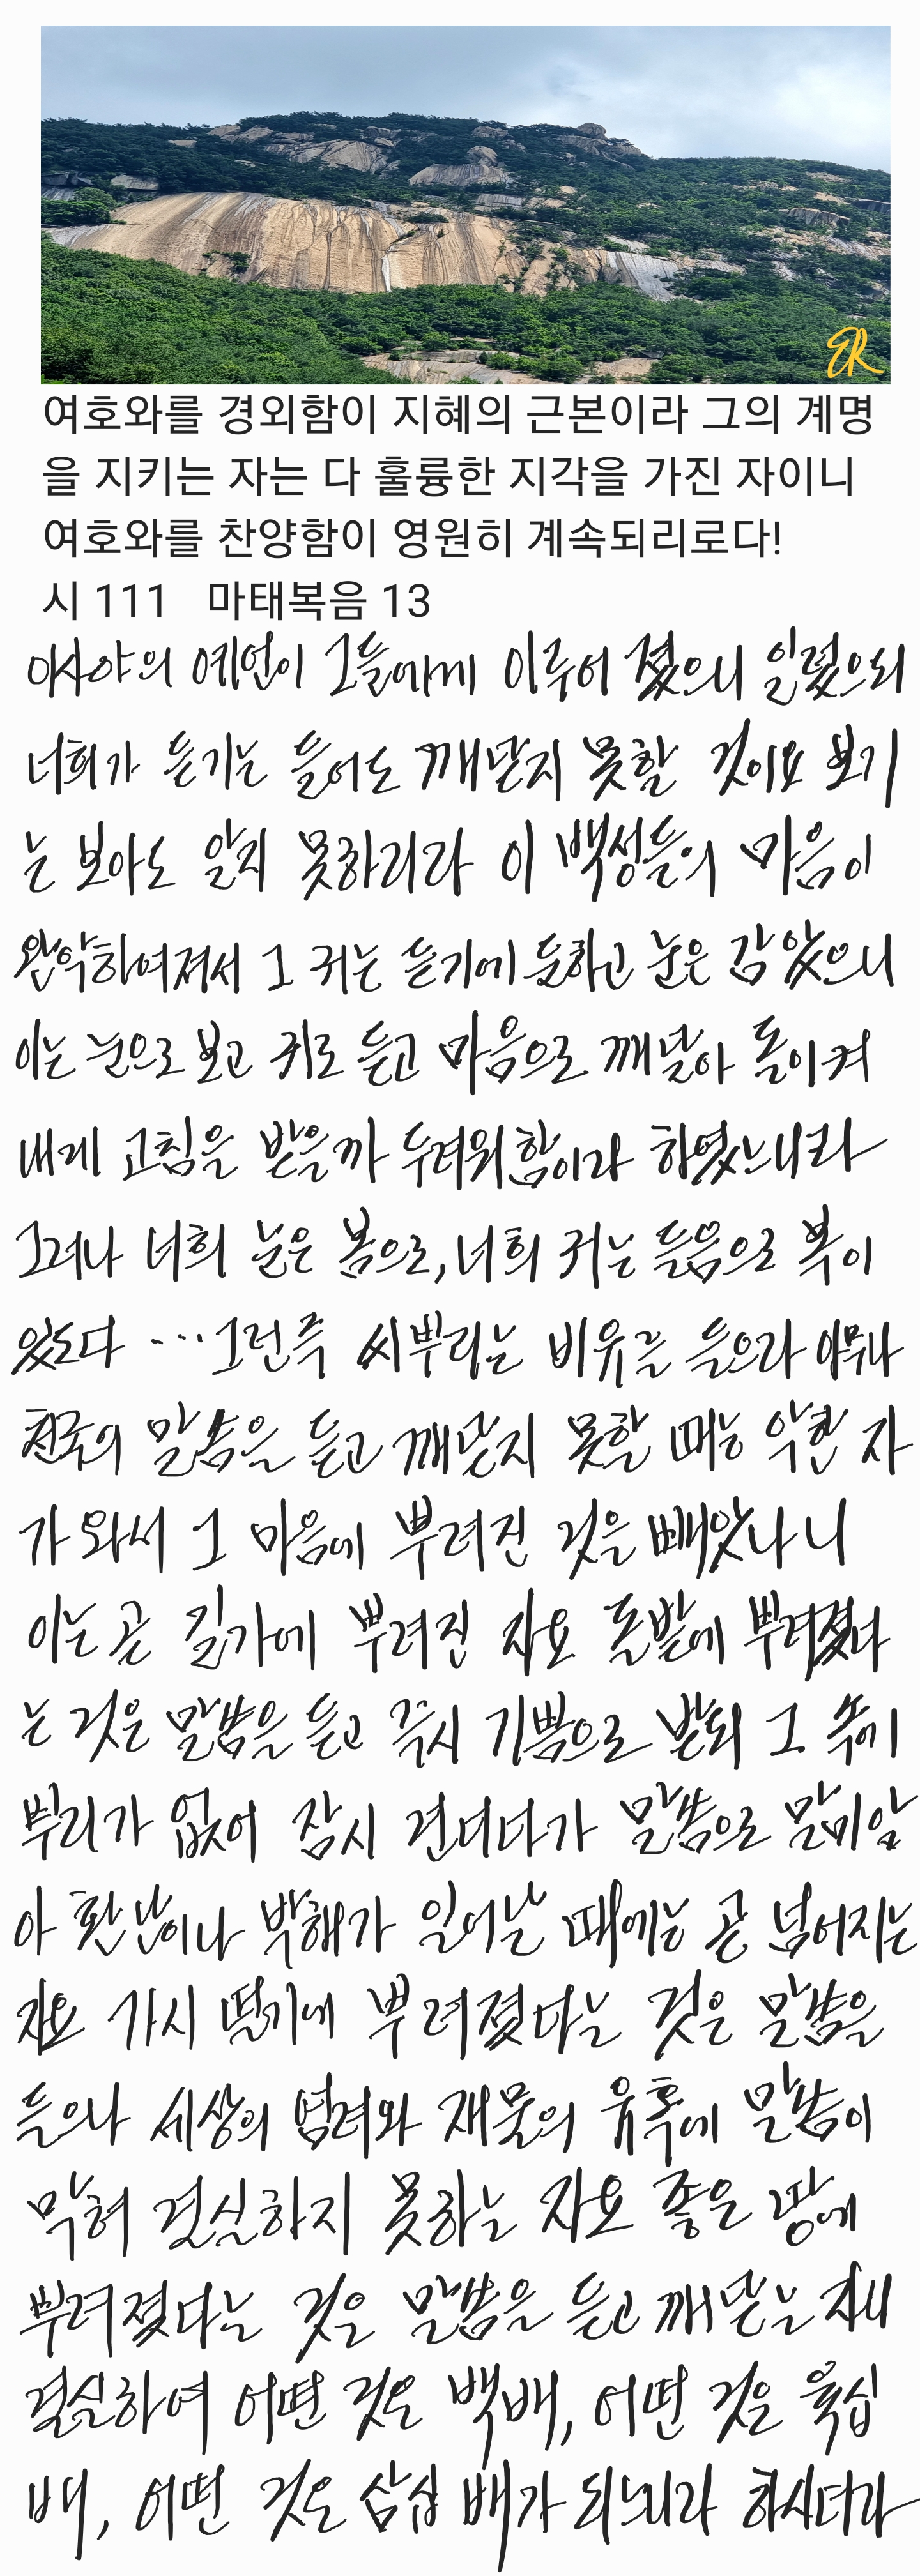 ER
여호와를 경외함이 지혜의 근본이라 그의 계명
을 지키는 자는 다 훌륭한 지각을 가진 자이니
여호와를 찬양함이 영원히 계속되리로다!
시 111 마태복음 13
이사야의 예언이 그들에게 이루어 졌으니 일렀으되
너희가 듣기는 들어도 깨닫지 못할 것이요 보기
는 보아도 알지 못하리라 이 백성들의 마음이
완악하여져서 그 귀는 듣기에 둔하고 눈은 감았으니
이는 눈으로 보고 귀로 듣고 마음으로 깨달아 돌이켜
내게 고침을 받을까 두려워함이라 하였느니라
그러나 너희 눈은 봄으로, 너희 귀는 들음으로 복이
있도다 ...그런즉 씨뿌리는 비유를 들으라 아무나
천국의 말씀을 듣고 깨닫지 못할 때는 악한 자
가 와서 그 마음에 뿌려진 것을 빼앗나니
이는 곧 길가에 뿌려진 자요 돌밭에 뿌려졌다
는 것은 말씀을 듣고 즉시 기쁨으로 받되 그 속에
뿌리가 없어 잠시 견디다가 말씀으로 말미암
아 환난이나 박해가 일어날 때에는 곧 넘어지는
자요 가시 떨기에 뿌려졌다는 것은 말씀을
들으나 세상의 염려와 재물의 유혹에 말씀이
막혀 결실하지 못하는 자요 좋은 땅에
뿌려졌다는 것은 말씀을 듣고 깨닫는 자니
결실하여 어떤 것은 백배, 어떤 것은 육십
배, 어떤 것은 삼십 배가 되느니라 하시더라